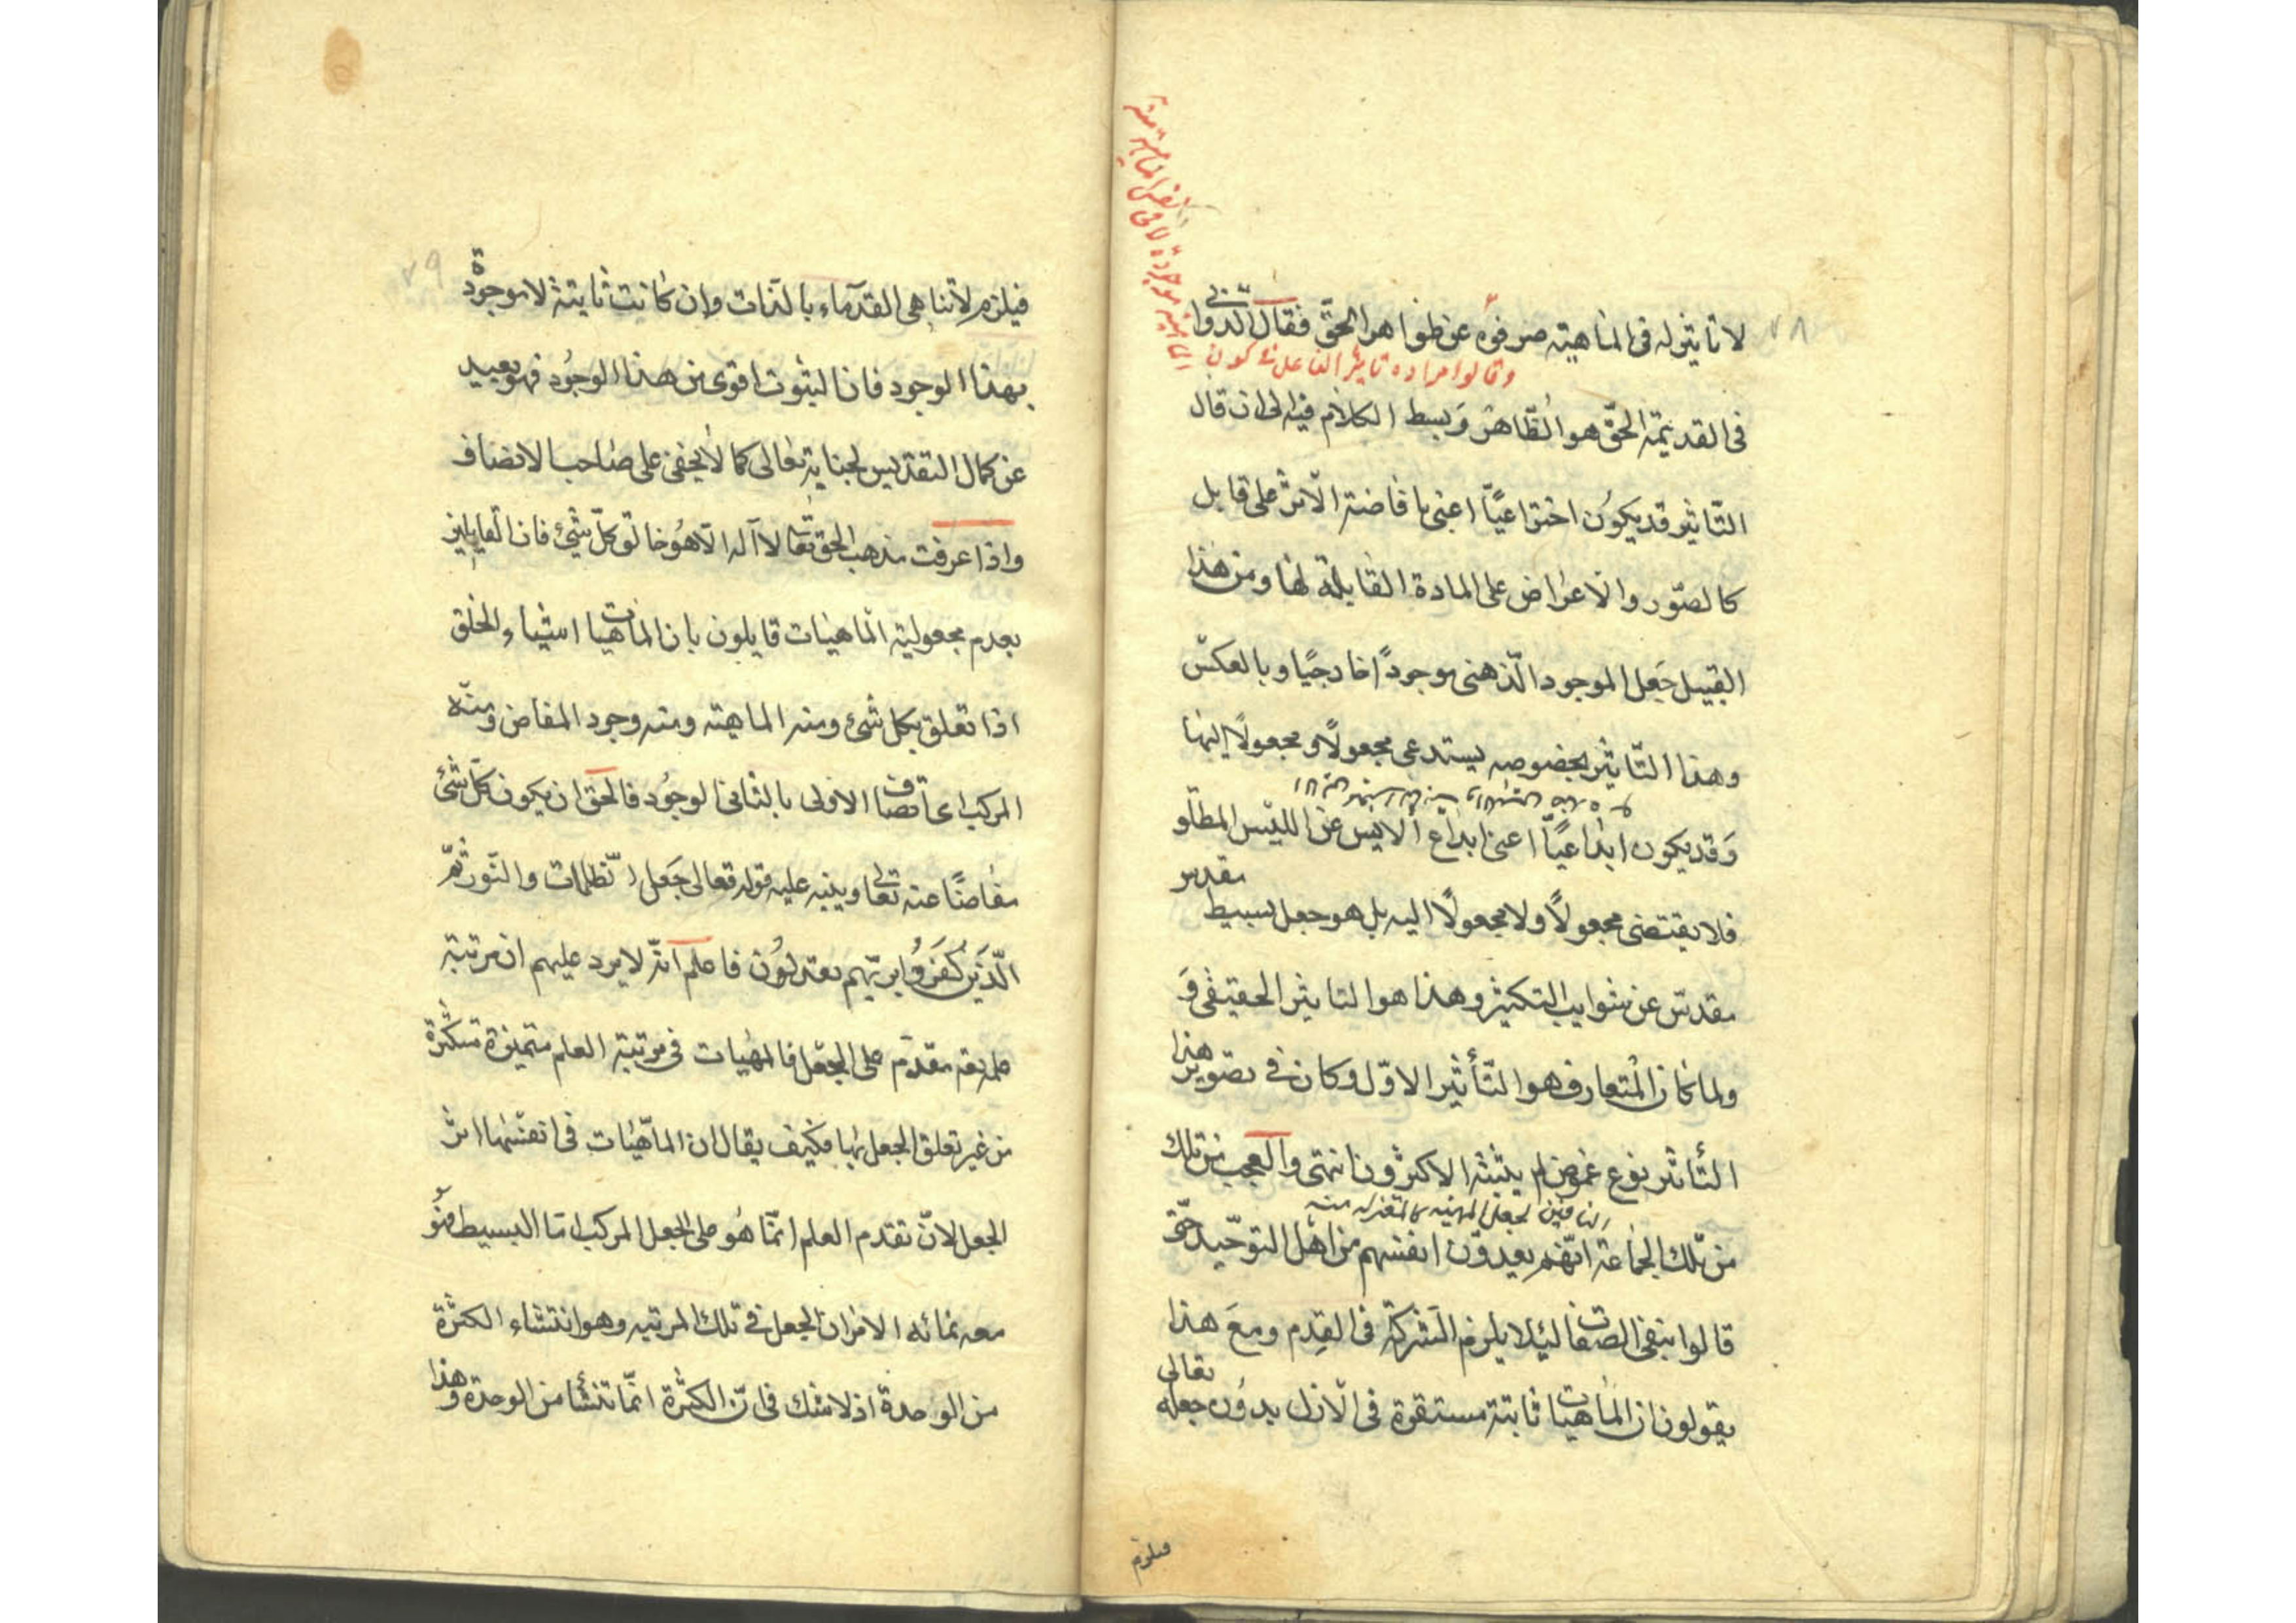 ٧٨
لا تأثير له فى الماهية صرفوه عن ظواهر الحقّ فقال الدّوانى
وقالوا مراده تأثير الفاعل فى كون
الماهية موجودة لا فى نفس الماهية منه
فى القديمة الحقّ هو الظّاهر وبسط الكلام فيه الى ان قال
التّأثير قد يكون اختراعيّا اعنى بافاضة الاثر على قابل
كالصّور والاعراض على المادة القابلة لها ومن هذا
القبيل جعل الموجود الذّهنى موجوداً خارجيّا وبالعكس
وهذا التّأثير بخصوصه يستدعى مجعولاً ومجعولاً إليها
وقد يكون ابداعيّاً اعنى ابداع الايس عن الليس المطلق
فلا يقتضى مجعولاً ولا مجعولاً اليه بل هو جعل بسيط مقدس
مقدس عن شوايب التكثير وهذا هو التأثير الحقيقى و
ولما كان المتعارف هو التّأثير الاوّل وكان فى تصوير هذا
التأثير نوع غموض لم يثبته الاكثرون انتهى والعجب من تلك
النافين لجعل المهية كالمعتزلة منه
من تلك الجماعة انّهم يعدّون انفسهم من اهل التوحيد حتّى
قالوا بنفى الصفات ليئلا يلزم الشركة فى القدم ومع هذا
يقولون ان الماهيات ثابتة مستقرة فى الازل بدون جعله تعالى
فيلزم
٧٩
فيلزم لاتناهى القدمآء بالذات وان كانت ثابتة لا موجودة
بهذا الوجود فان الثبوت اقوى من هذا الوجود فهو بعيد
عن كمال التقديس لجنابه تعالى كما لا يخفى على صاحب الانصاف
واذا عرفت مذهب الحق تعالى لا آله الّا هو خالق كلّ شئ فان القايلين
بعدم مجعولية الماهيات قايلون بان الماهيات اشياء والخلق
اذا تعلق بكل شئ ومنه الماهية ومنه وجود المفاض ومنه
المركب اى اتصاف الاولى بالثانى الوجود فالحق ان يكون كلّ شئ
مفاضًا عنه تعالى وينبه عليه قوله تعالى جعل الظلمات والنّور ثمّ
الّذين كفروا بربّهم يعدلون فاعلم انّه لا يرد عليهم ان مرتبة
علمه مقدّم على الجعل فالمهيات فى مرتبة العلم متميزة متكثرة
من غير تعلق الجعل بها فكيف يقال ان الماهيّات فى انفسها اثر
الجعل لانّ تقدم العلم انّما هو على الجعل المركب امّا البسيط فهو
معه نهائه الامر ان الجعل فى تلك المرتبه وهو انتشاء الكثرة
من الوحدة اذ لا شك فى انّ الكثرة انّما تنشأ من الوحدة وهذا